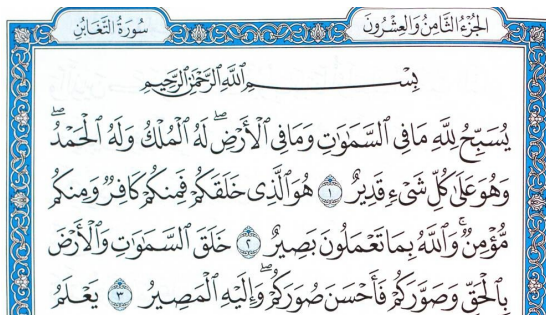 الجُزْءُ الثَّامِنُ وَالعِشْرُونَ
سُورَةُ التَّغَابُنِ
بِسْمِ ٱللَّهِ ٱلرَّحْمَٰنِ ٱلرَّحِيمِ
يُسَبِّحُ لِلَّهِ مَا فِي ٱلسَّمَٰوَٰتِ وَمَا فِي ٱلْأَرْضِۖ لَهُ ٱلْمُلْكُ وَلَهُ ٱلْحَمْدُۖ
وَهُوَ عَلَىٰ كُلِّ شَىْءٍ قَدِيرٌ ١ هُوَ ٱلَّذِى خَلَقَكُمْ فَمِنكُمْ كَافِرٌ وَمِنكُم
مُّؤْمِنٌۚ وَٱللَّهُ بِمَا تَعْمَلُونَ بَصِيرٌ ٢ خَلَقَ ٱلسَّمَٰوَٰتِ وَٱلْأَرْضَ
بِٱلْحَقِّ وَصَوَّرَكُمْ فَأَحْسَنَ صُوَرَكُمْۖ وَإِلَيْهِ ٱلْمَصِيرُ ٣ يَعْلَمُ